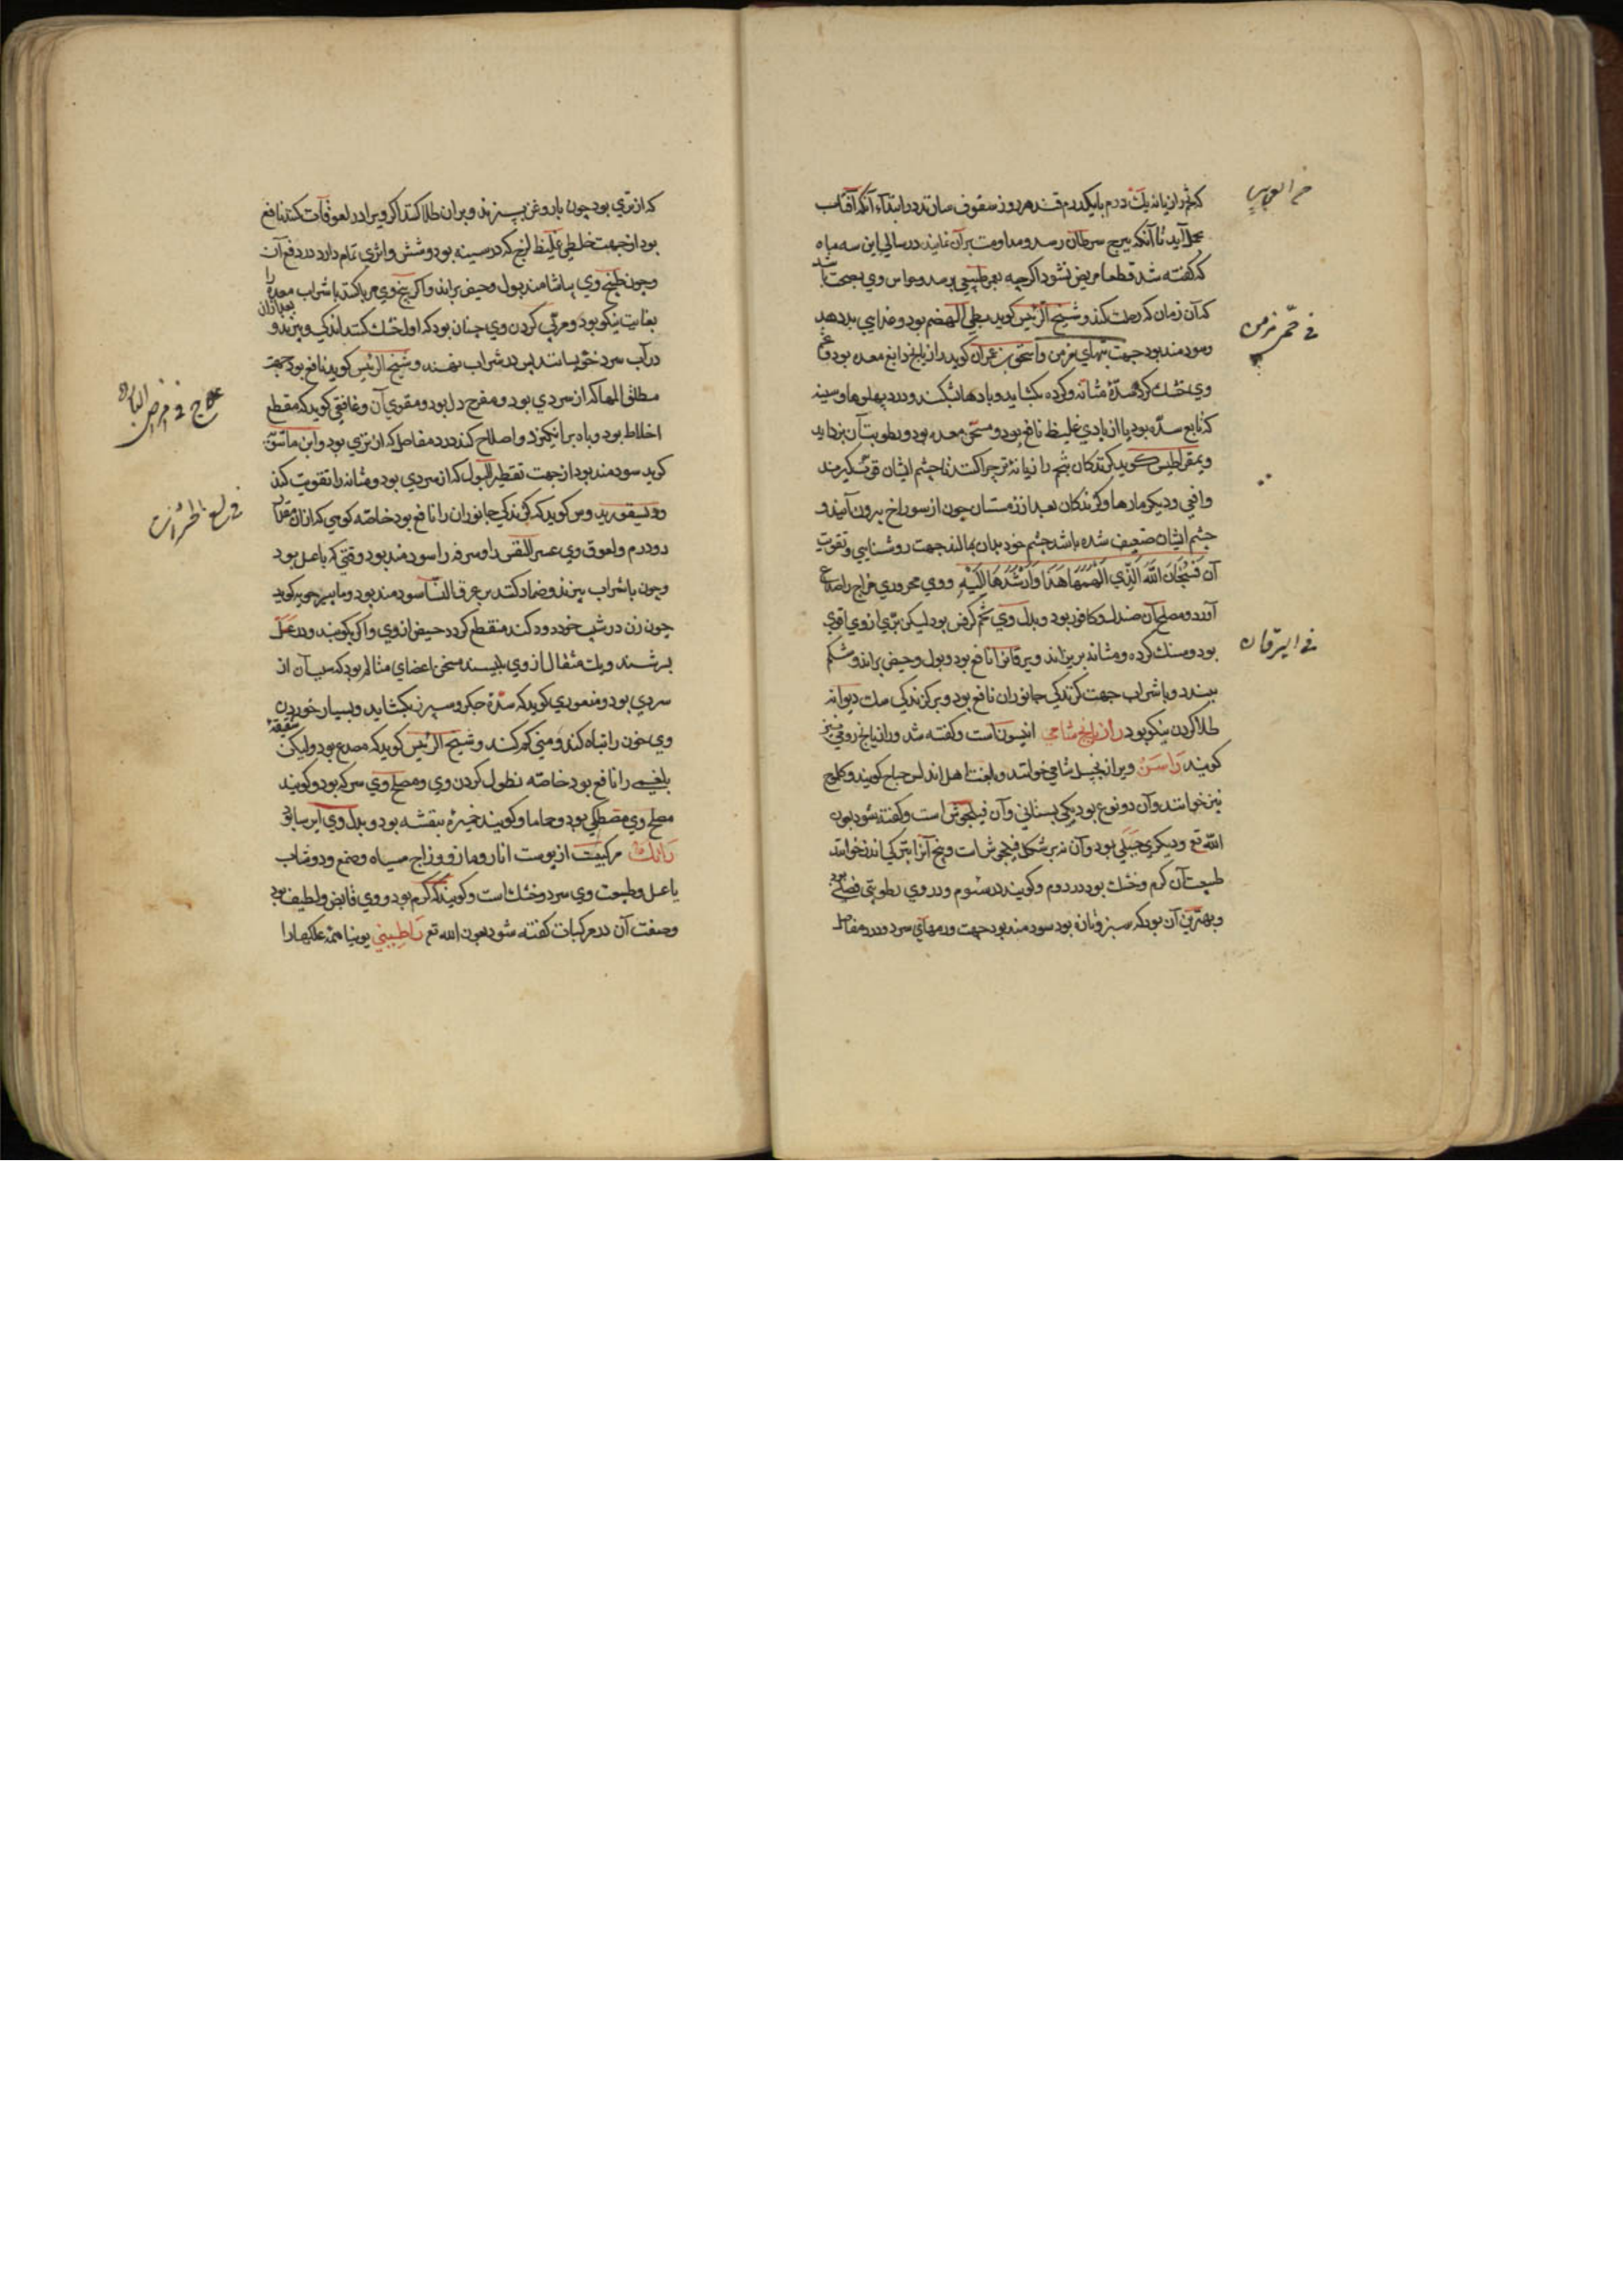 که تخم رازیانه یک درم با یکدرم قند هر روز سفوف سازند در ابتداء آنکه آفتاب
بحمل آید تا آنکه ببرج سرطان رسد و مداومت بر آن نمایند در سالی این سه ماه
که گفته شد قطعا مریض نشود اگرچه بعمر طبیعی برسد و حواس وی بصحت باشد
که آن زمان که رحلت کند و شیخ الرئیس گوید بطی الهضم بود و غذایی بد دهد
و سودمند بود جهت تبهای مزمن و اسحق بن عمران گوید رازیانج دابغ معده بود و تخم
وی خشک کرده سدّهٔ مثانه و کرده بکشاید و بادها بشکند و درد پهلوها و سینه
که تابع سدّه بود یا از بادی غلیظ نافع بود و مسخن معده بود و رطوبت آن بزداید
دیمقراطیس گوید گزندکان تخم رازیانهٔ تر چرا کنند تا چشم ایشان قوت گیرد
و افعی و دیکر مارها و گزندکان بعد از زمستان چون از سوراخ بیرون آیند و
چشم ایشان ضعیف شده باشد چشم خود بدان بمالند جهت روشنایی و تقویت
آن فَسُبْحَانَ اللَّه الَّذِی اَلْهَمَهَا هَذَا وَاَرْشَدَهَا اِلَیْهِ و وی محروری مزاج را صداع
آورد و مصلح آن صندل و کافور بود و بدل وی تخم کرفس بود لیکن برّی از وی اقوی
بود و سنک کرده و مثانه بریزاند و یرقانرا نافع بود و بول و حیض براند و شکم
ببندد و با شراب جهت گزندکی جانوران نافع بود و بر گزندکی سک دیوانه
طلا کردن نیکو بود رازیانج شامی انیسون است و گفته شد و رازیانج رومی نیز
گویند راسن ویرا زنجبیل شامی خوانند و بلغت اهل اندلس جناح گویند و کلوج
نیز خوانند و آن دو نوع بود یکی بستانی و آن فیلجوش است و گفته شود بعون
الله تع و دیگری جبلی بود و آن نه بر شکل فیلجوش است و بیخ آنرا بترکی اندز خوانند
طبیعت آن گرم و خشک بود در دوم و گویند در سوم و در وی رطوبتی فضلی بود
و بهترین آن بود که سبز و تازه بود سودمند بود جهت ورمهای سرد و درد مفاصل
فی حمّی مزمن
فی الیرقان
که از تری بود چون با روغن بپزند و بر ان طلا کنند اگر ویرا در لعوقات کنند نافع
بود از جهت خلطی غلیظ لزج که در سینه بود و شش و اثری تمام دارد در دفع آن
و چون طبیخ وی بیاشامند بول و حیض براند و اگر بیخ وی مربا کنند با شراب معده را
بغایت نیکو بود و مربی کردن وی چنان بود که اول خشک کنند اندکی و بپزند و بعد ازان
در آب سرد خویسانند پس در شراب نهند و شیخ الرئیس گوید نافع بود جهت
مطلق المها که از سردی بود و مفرح دل بود و مقوی آن و غافقی گوید که مقطع
اخلاط بود و باه برانکیزد و اصلاح کند درد مفاصل که از تری بود و ابن ماسویه
گوید سودمند بود از جهت تقطیر البول که از سردی بود و مثانه را تقویت کند
و دیسقوریدوس گوید که گزندکی جانوران را نافع بود خاصّه کوهی که از ان مقدار
دو درم و لعوق وی عسر النفس را و سرفه را سودمند بود وقتی که با عسل بود
و چون با شراب بپزند و ضماد کنند بر عرق النّسا سودمند بود و ماسرجویه گوید
چون زن در شب خود دود کند منقطع کردد حیض از وی و اگر بکوبند و در عسل
بسرشند و یک مثقال از وی بلیسند مسخن اعضای متالم بود که سبب آن از
سردی بود و منصوری گوید که سدّهٔ جگر و سپرز بکشاید و بسیار خوردن
وی خون را تباه کند و منی کم کند و شیخ الرئیس گوید که مصدع بود و لیکن شقیقهٔ
بلغمی را نافع بود خاصّه نطول کردن وی و مصلح وی سرکه بود و گویند
مصلح وی مصطکی بود و حاما و گویند خمیرهٔ بنفشه بود و بدل وی ایرسا بود
رامک مرکبیست از پوست انار و مازو و زاج سیاه و صمغ و دوشاب
یا عسل و طبیعت وی سرد و خشک است و گویند که گرم بود و وی قابض و لطیف بود
و صفت آن در مرکبات گفته شود بعون الله تع راطینی یونیا همه علکها را
علاج فی امراض البارد